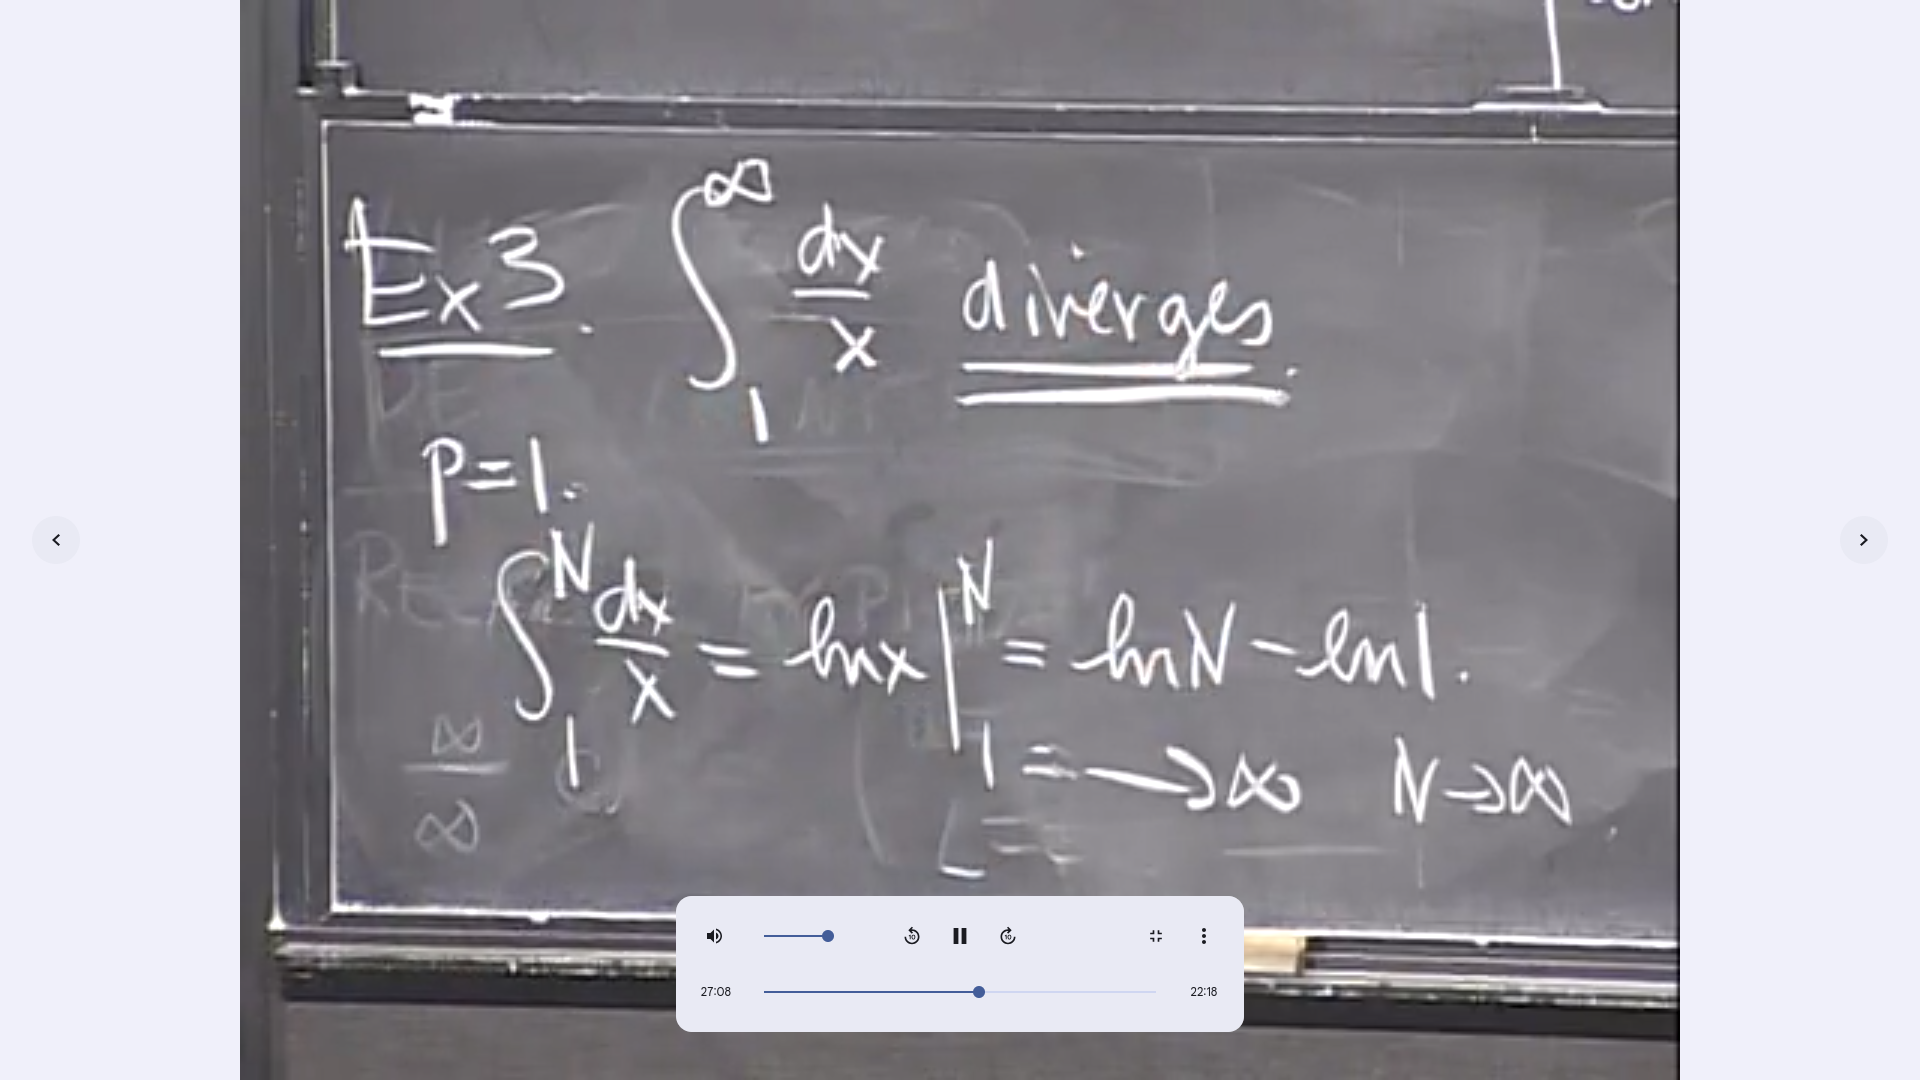 Ex 3. ∫₁^∞ dx/x diverges.
P=1.
∫₁^N dx/x = ln x |₁^N = ln N - ln 1.
= → ∞ N → ∞
∞/∞
10 10
27:08 22:18